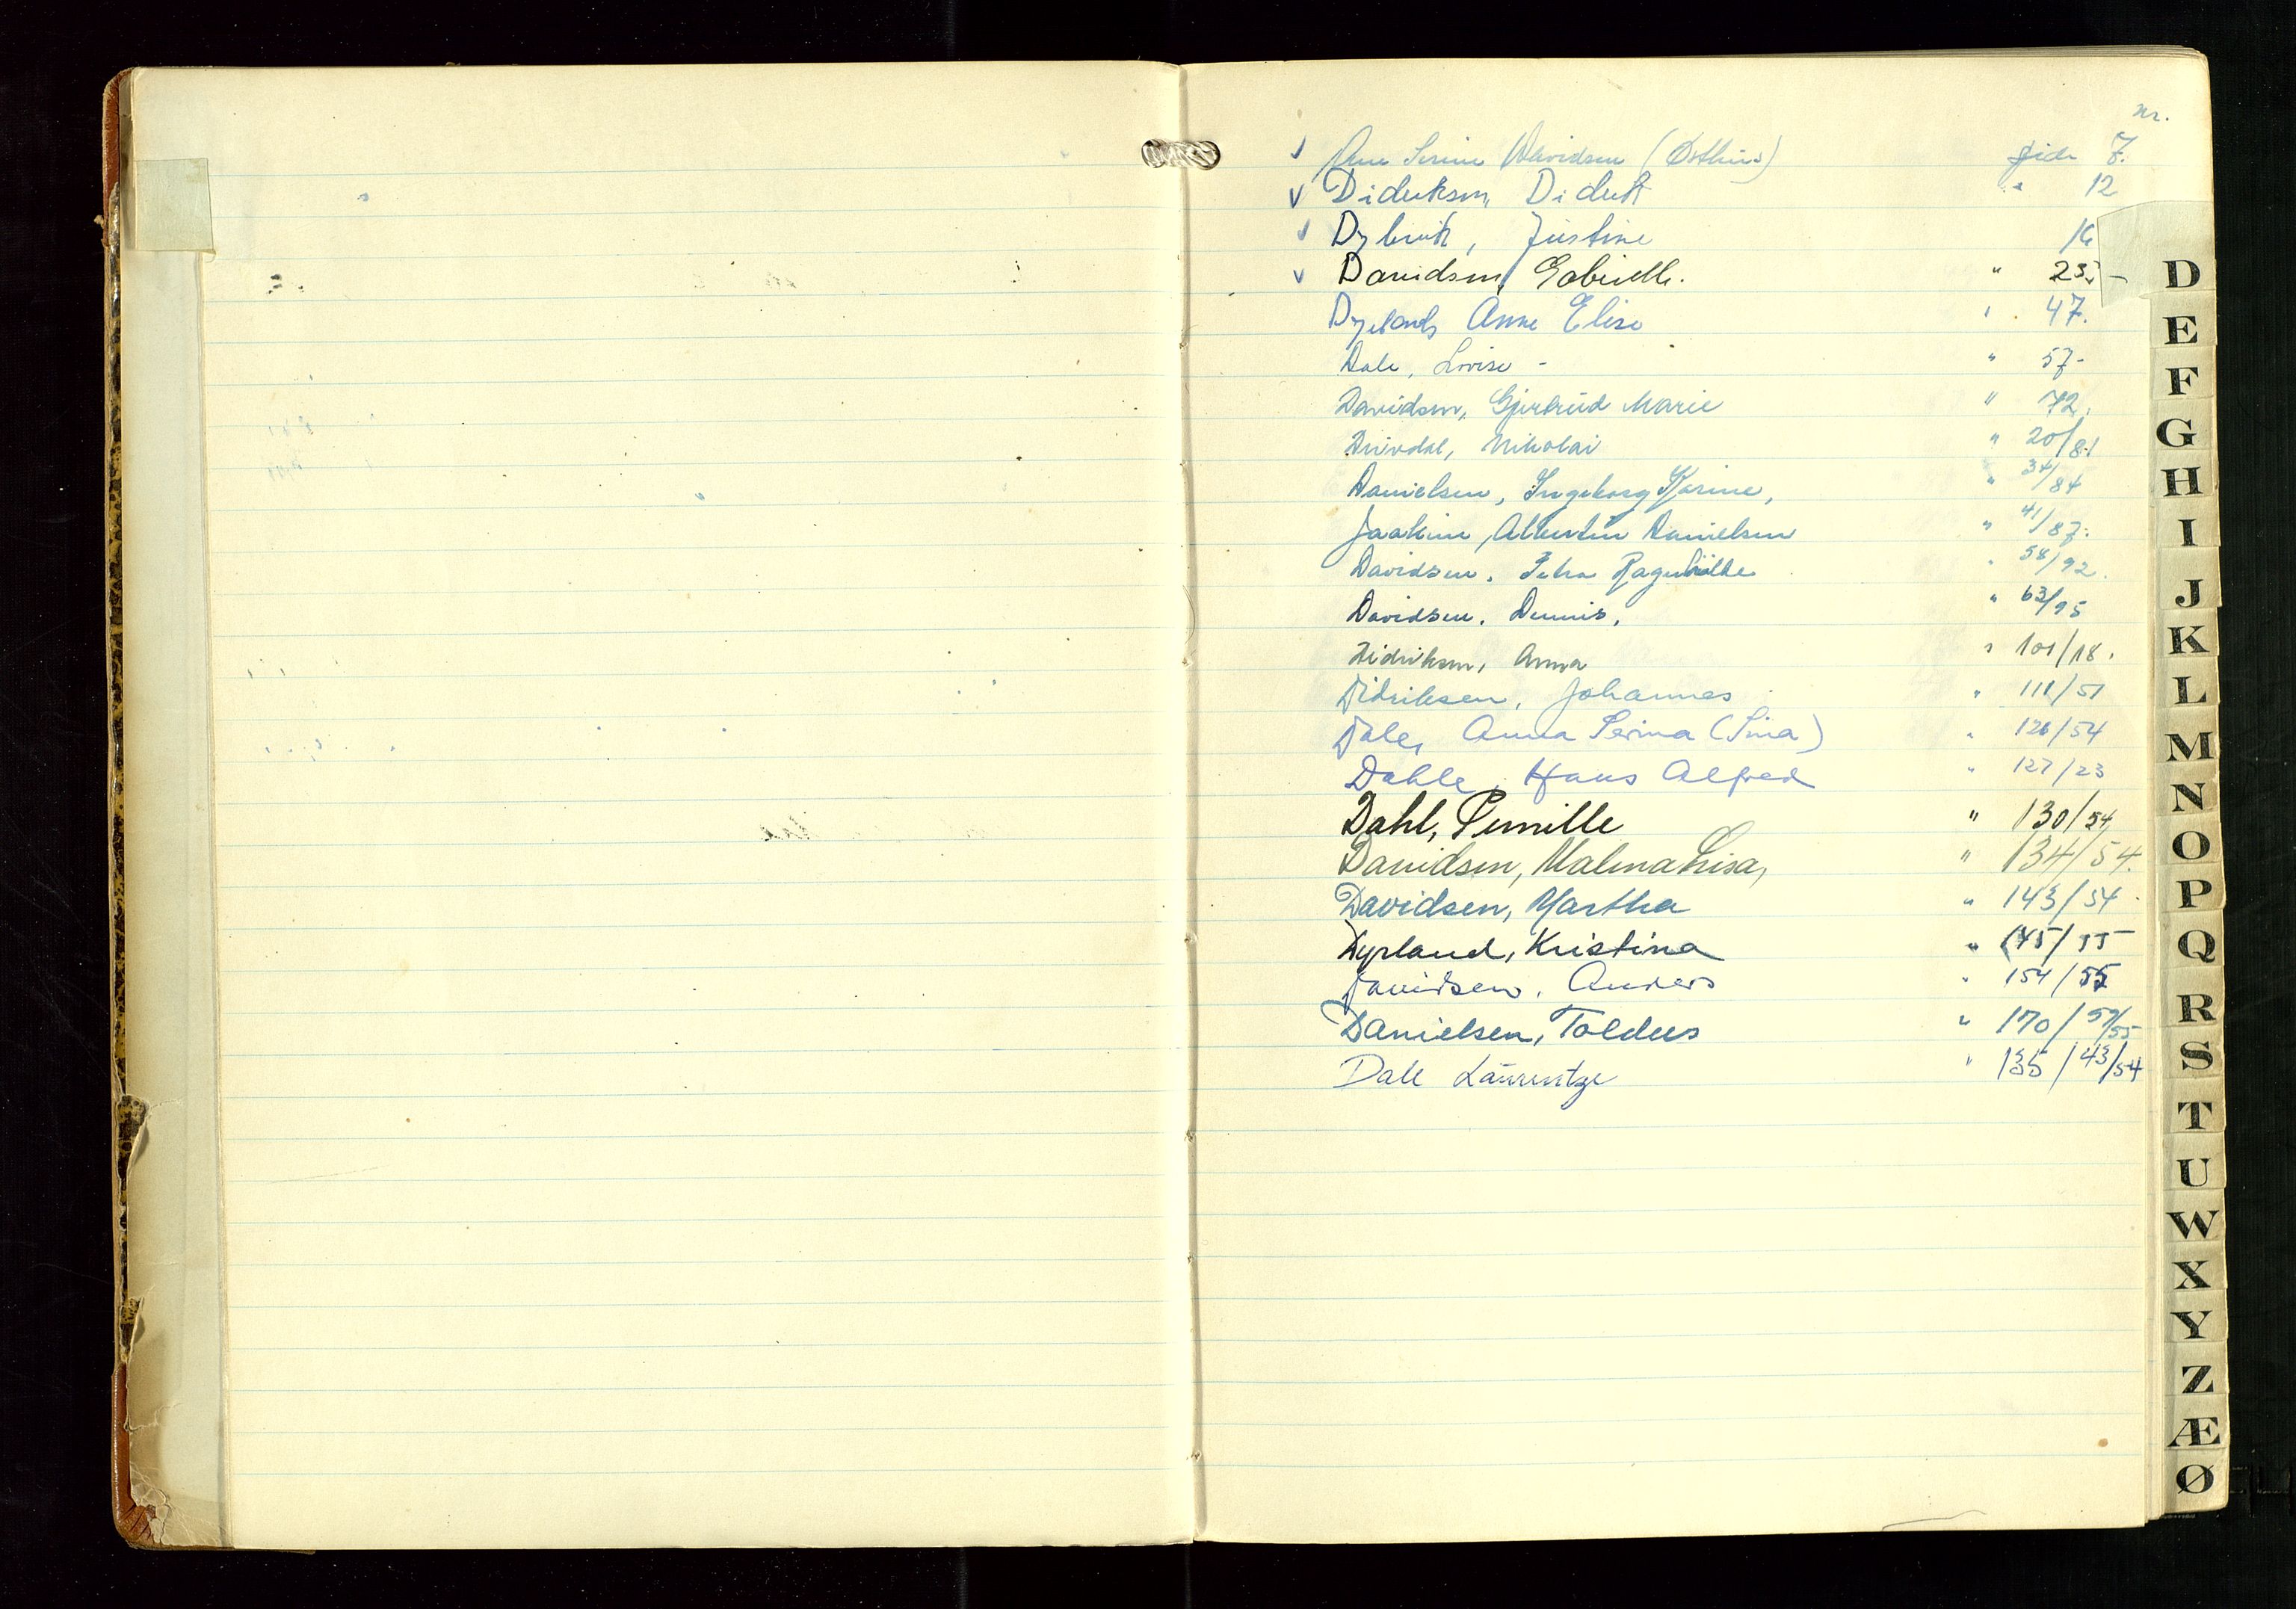 nr.
✓ Ane Serine Davidsen (Østhus) side 7.
✓ Dideriksen, Didrik " 12
✓ Dybvik, Justine 16
✓ Davidsen, Gabrielle. " 25 -
Dysland, Anne Elise " 47.
Dale, Lovise - " 57-
Davidsen, Gjertrud Marie " 72.
Drivdal, Nikolai " 20/81
Danielsen, Ingeborg Karine, " 34/84
Joakim Albertin Danielsen " 41/87.
Davidsen, Petra Ragnhilde " 58/92.
Davidsen, Dennis, " 63/95
Didriksen, Anna " 101/18.
Didriksen, Johannes " 111/51
Dale, Anna Serina (Sina) " 126/54
Dahle, Hans Alfred " 127/23
Dahl, Pernille " 130/54
Davidsen, Malena Lisa, " 134/54.
Davidsen, Martha " 143/54
Dyrland, Kristina " 145/55
Davidsen, Anders " 154/55
Danielsen, Toldus " 170/57/55
Dale Laurentze " 135/43/54
D
E
F
G
H
I
J
K
L
M
N
O
P
Q
R
S
T
U
W
X
Y
Z
Æ
Ø